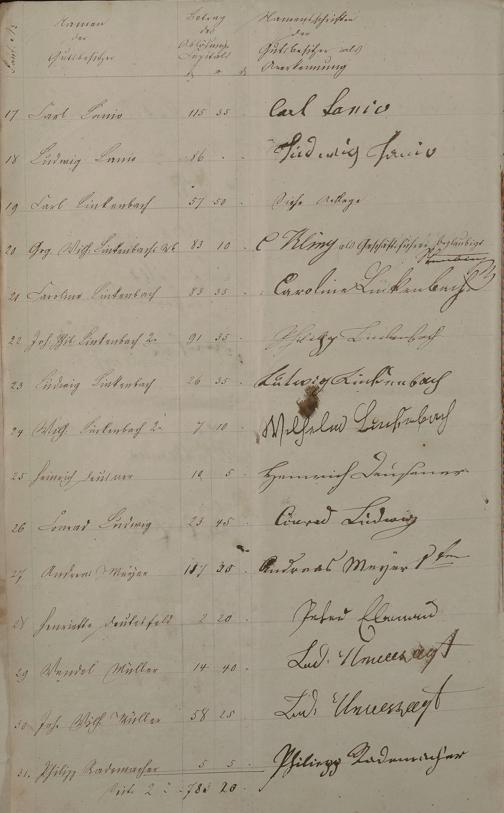 Namen
der
Gutsbesitzer
Betrag
des
Ablösungs
Capitals
Namensschriften
der
Gutsbesitzer als
Anerkennung
17 Carl Lanio 115 35 Carl Lanio
18 Ludwig Lanio 16 Ludwig Lanio
19 Carl Linkenbach 57 50 Siehe Anlage
20 Wilh. Linkenbachs 83 10 C Kling als Geschäftsführer
21 Caroline Linkenbach 83 35 Caroline Linkenbach
22 Joh. Linkenbach 2r 91 35 Philipp Linkenbach
23 Ludwig Linkenbach 26 35 Ludwig Linkenbach
24 Wilh. Linkenbach 2r 7 10 Wilhelm Linkenbach
25 Heinrich 10 5 Heinrich
26 Conrad Ludwig 23 45 Conrad Ludwig
27 Andreas Meyer 35 Andreas Meyer
28 Henriette 2 20 Peter
29 Wendel Müller 14 40 Lud.
30 Joh. Wilh. Müller 58 25 Lud.
31. Philipp Rademacher 5 5 Philipp Rademacher
Seite 2 20